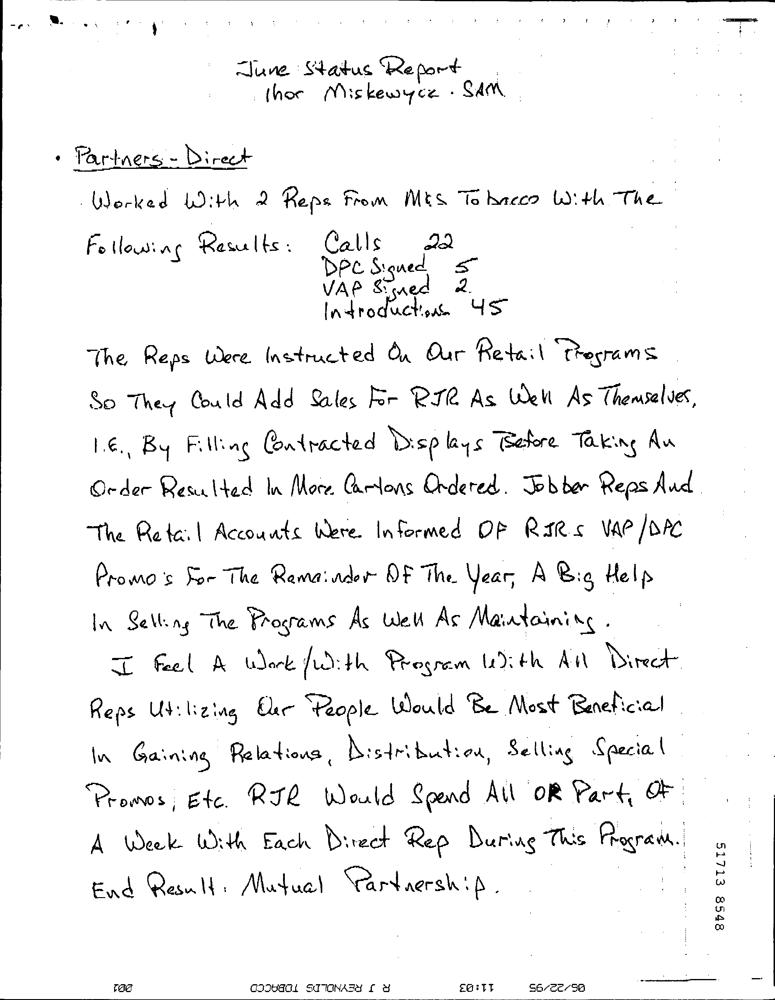 June Status Report
Ihor Miskewycz - SAM
• Partners - Direct
Worked With 2 Reps From M&S Tobacco With The
Following Results: Calls 22
DPC Signed 5
VAP Signed 2
Introductions 45
The Reps Were Instructed On Our Retail Programs
So They Could Add Sales For RJR As Well As Themselves,
I.E., By Filling Contracted Displays Before Taking An
Order Resulted In More Cartons Ordered. Jobber Reps And
The Retail Accounts Were Informed OF RJRs VAP/DPC
Promo's For The Remainder OF The Year, A Big Help
In Selling The Programs As Well As Maintaining.
I Feel A Work/With Program With All Direct
Reps Utilizing Our People Would Be Most Beneficial
In Gaining Relations, Distribution, Selling Special
Promos, Etc. RJR Would Spend All OR Part, Of
A Week With Each Direct Rep During This Program.
End Result: Mutual Partnership.
51713 8548
06/22/95 11:03 R J REYNOLDS TOBACCO 001